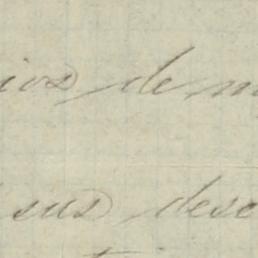 ios de m
sus desc